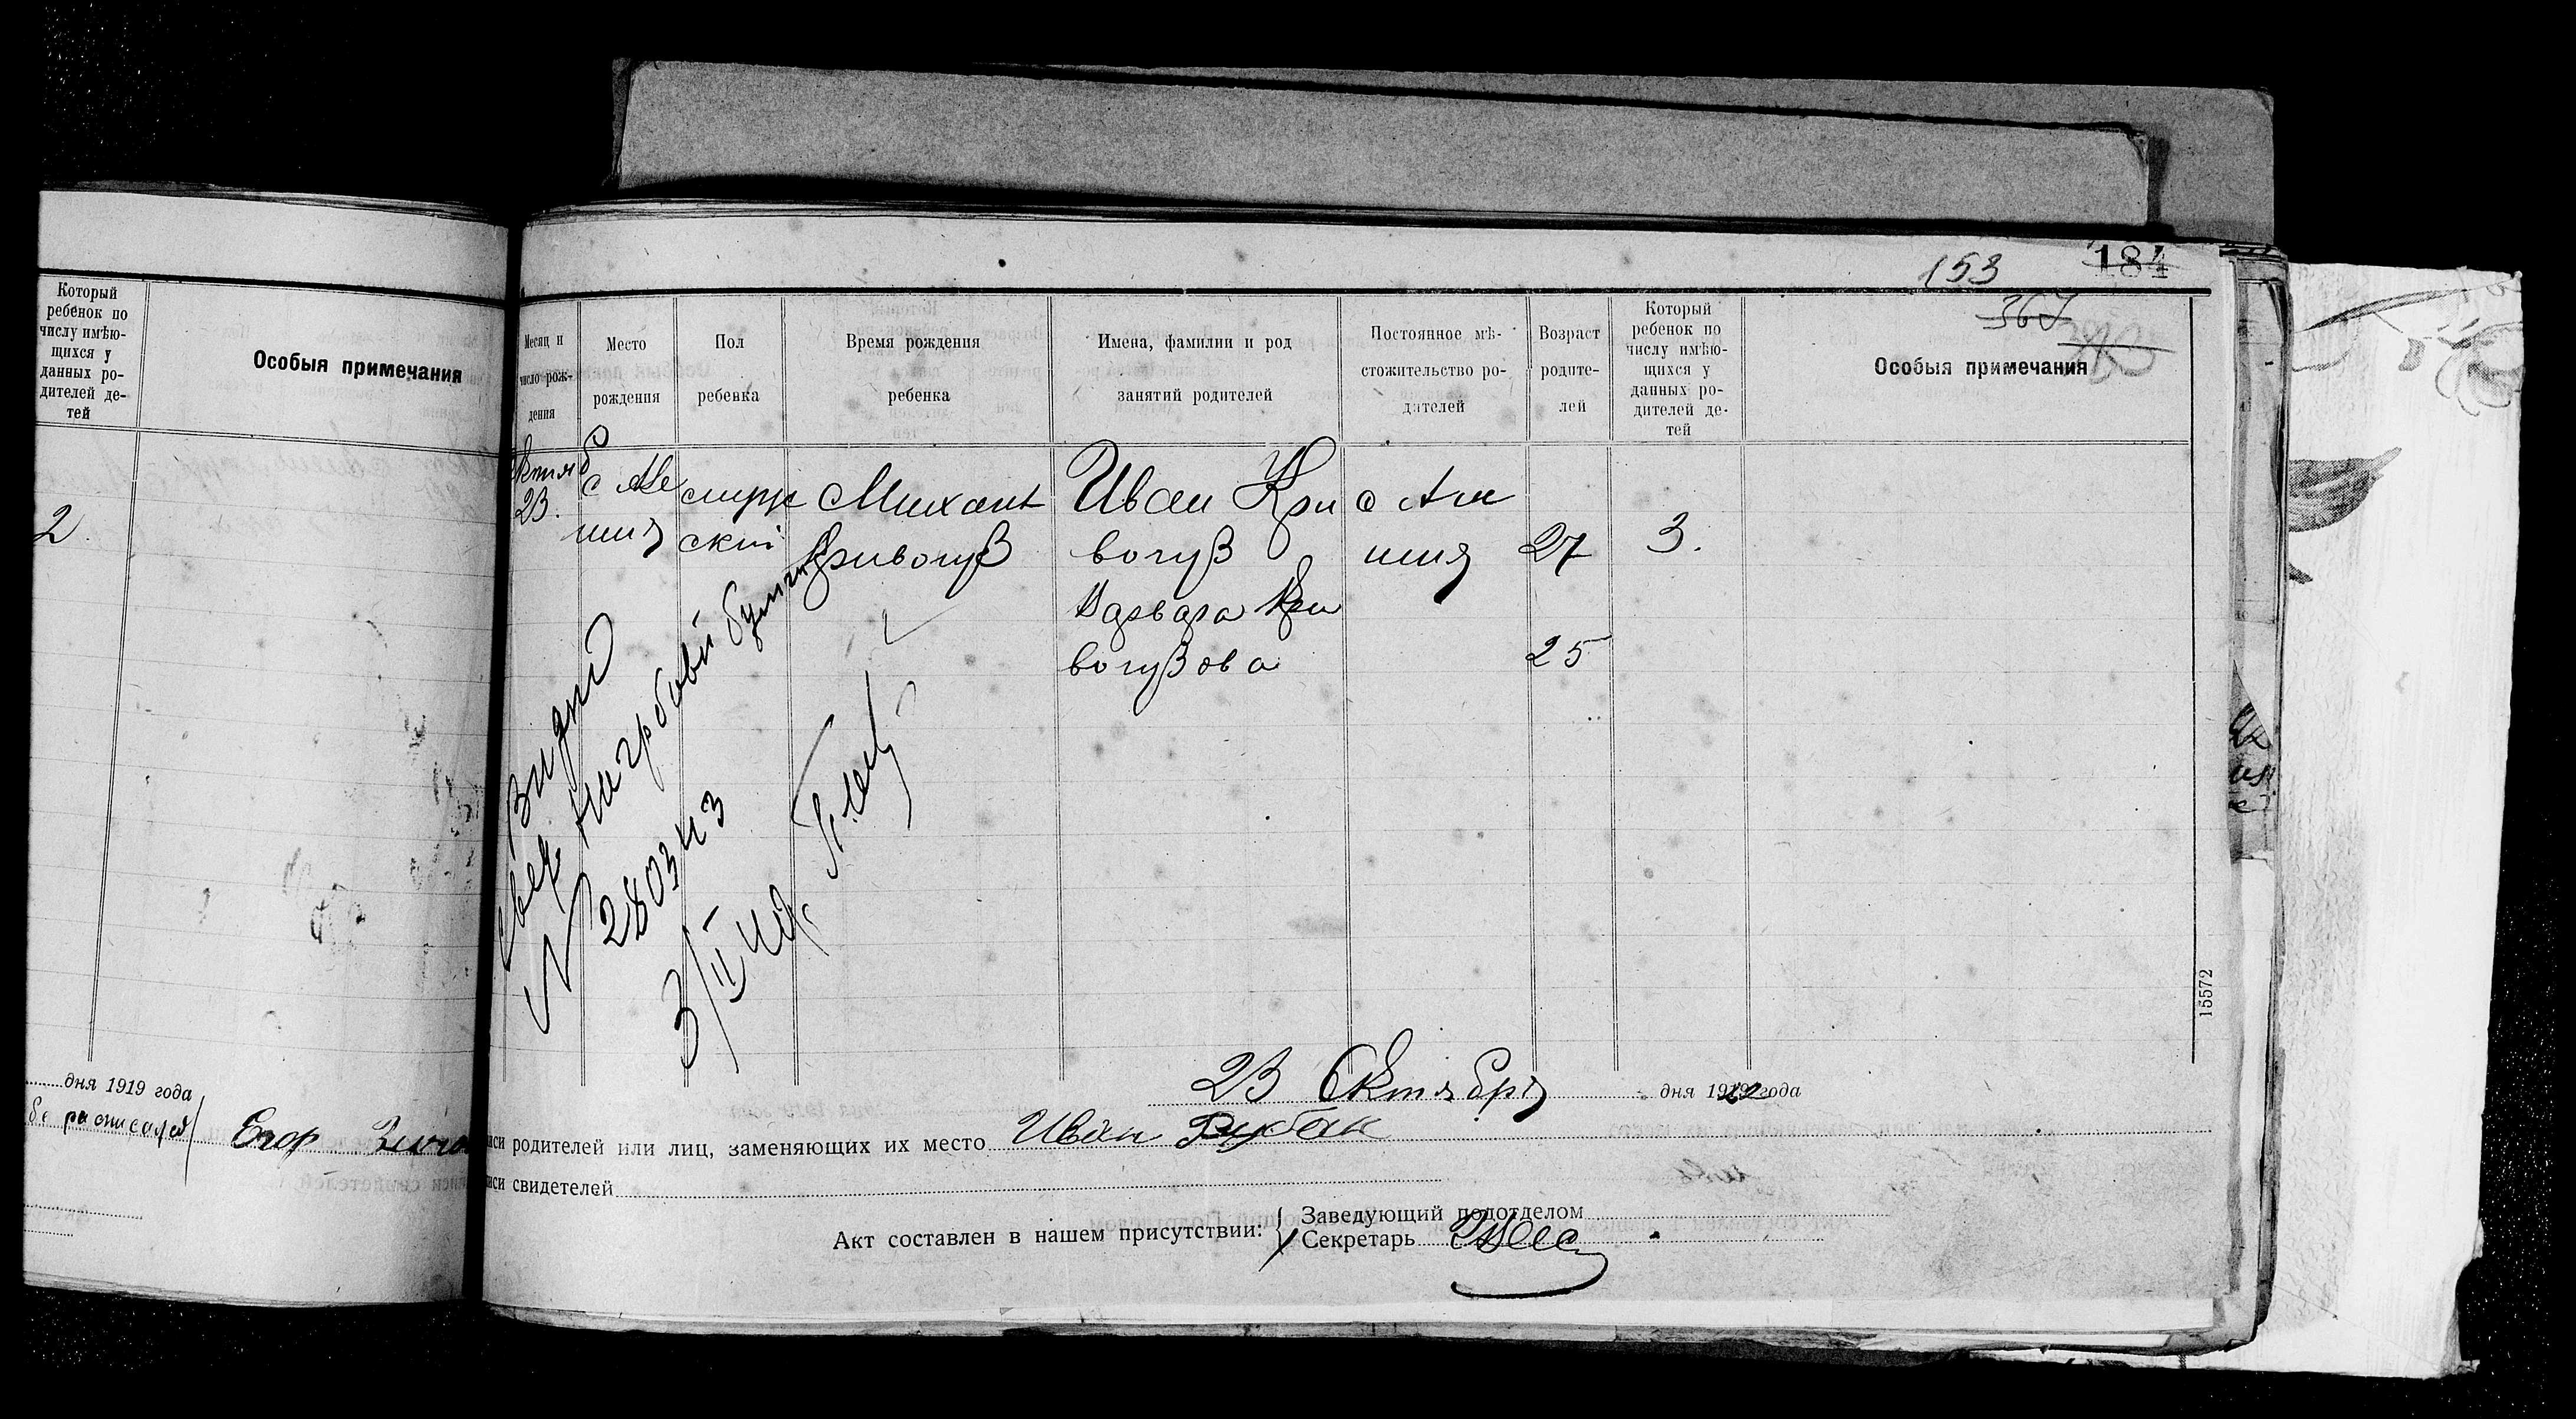 Который
ребенок по
числу имѣю-
щихся у
данных ро-
дителей де-
тей
Особыя примечания
2.
дня 1919 года
расписался
Егор
153
184
367
Месяц и
число рож-
дения
Место
рождения
Пол
ребенка
Время рождения
ребенка
Имена, фамилии и род
занятий родителей
Постоянное мѣ-
стожительство ро-
дителей
Возраст
родите-
лей
Который
ребенок по
числу имѣю-
щихся у
данных ро-
дителей де-
тей
Особыя примечания
23.
муж
ский
Михаил
Кривогуз
Иван Кри
вогуз
Варвара Кри
вогузова
27
25
3.
на гербовой бумаге
N 280343
3/II
15572
23 Октября дня 1922 года
родителей или лиц, заменяющих их место Иван Рубан
свидетелей
Акт составлен в нашем присутствии:
Заведующий подотделом
Секретарь